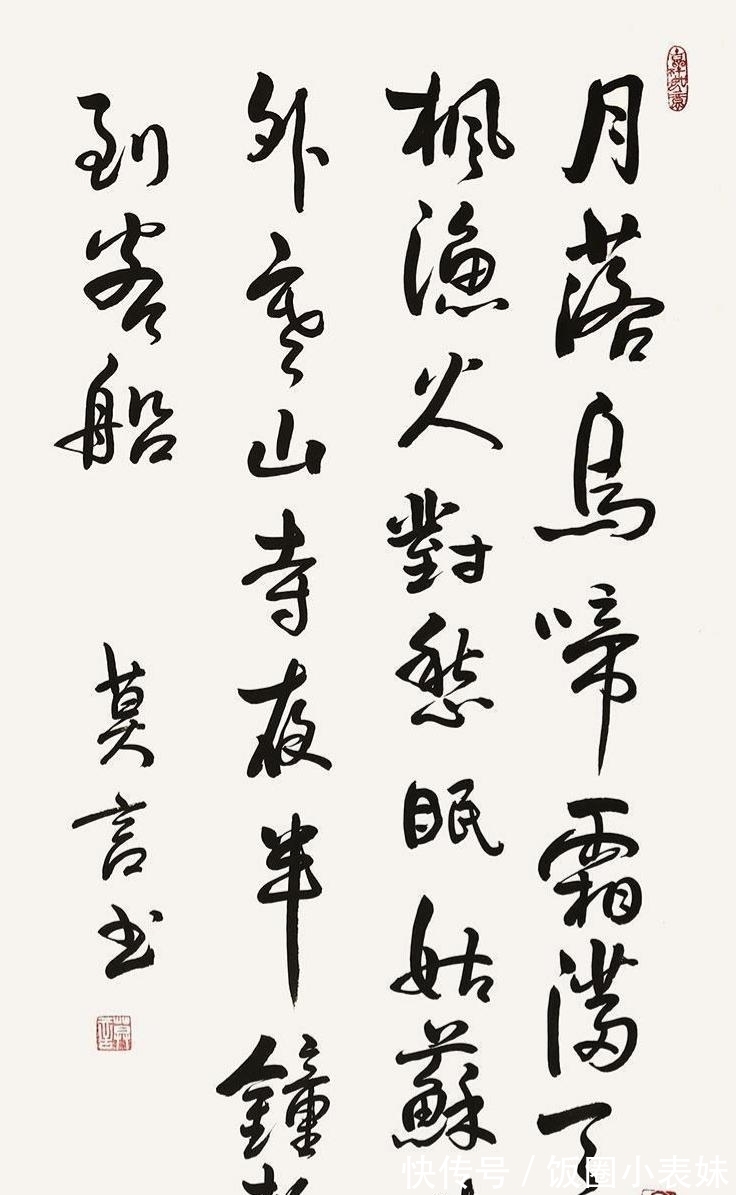 月落烏啼霜滿天
楓漁火對愁眠姑蘇
外寒山寺夜半鐘
到客船
莫言书
快传号/饭圈小表妹